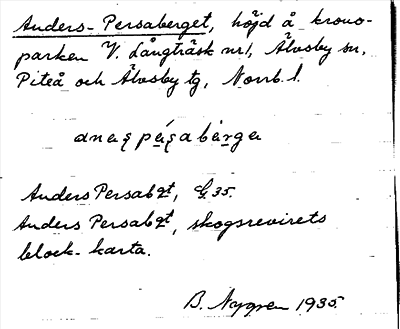 Anders-Persaberget, höjd å krono-
parken V. Långträsk nr 1, Älvsby sn,
Piteå och Älvsby tg, Norrb. l.
Anders Persabgt, G 35.
Anders Persabgt, skogsrevirets
block-karta.
B. Nygren 1935